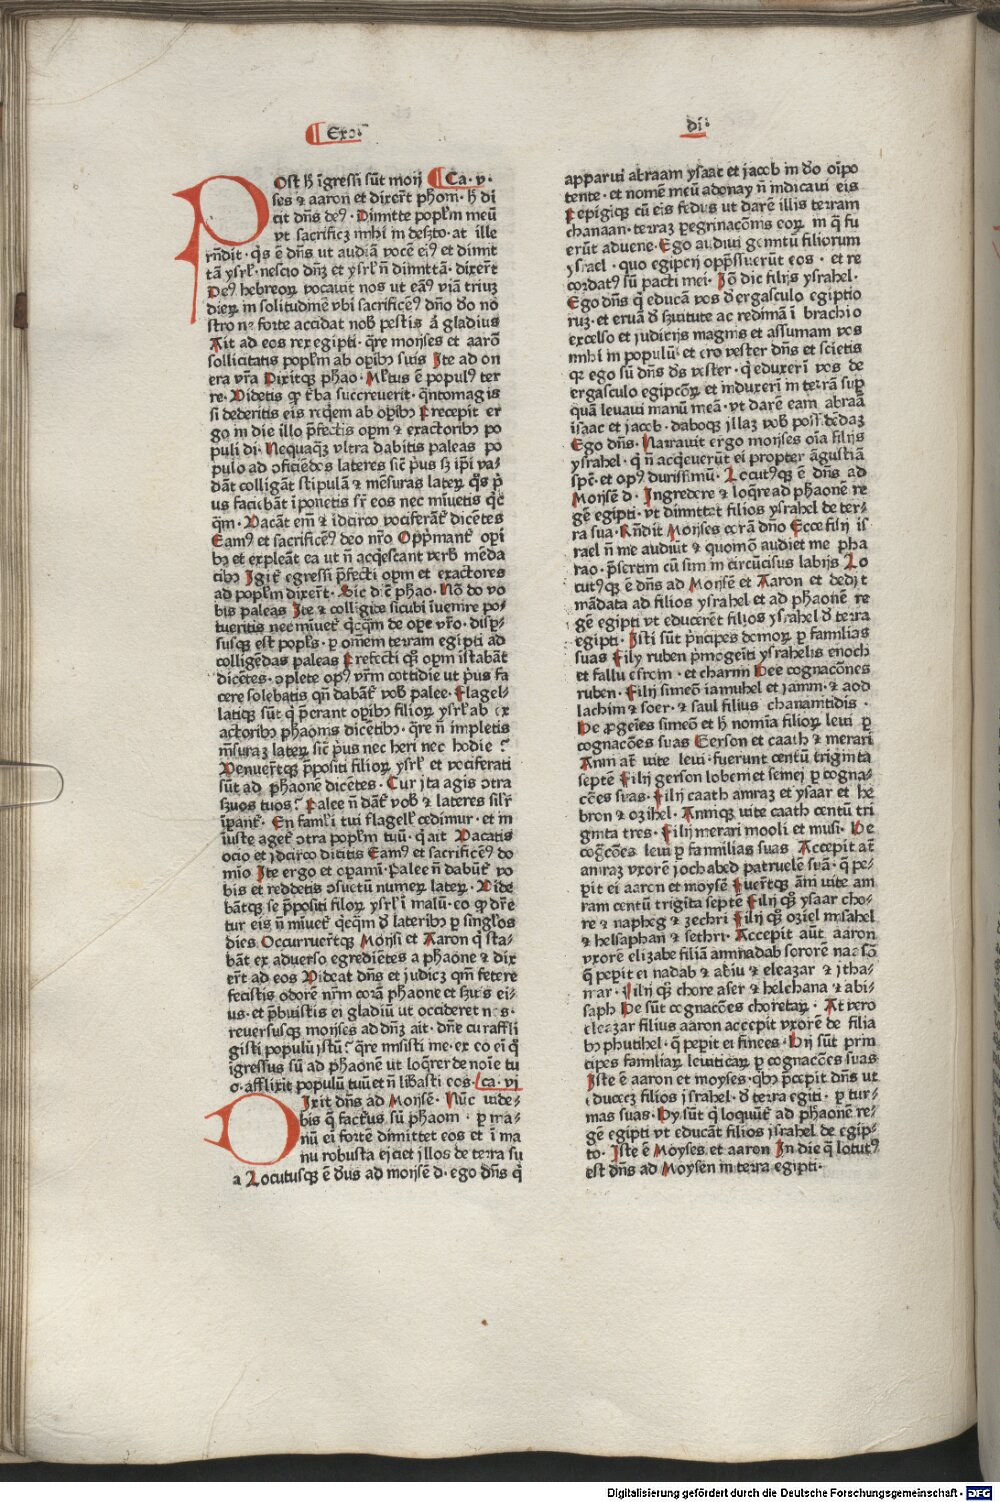 Exoˉ
di·
Post h̄ īgressi sūt moy Ca· v·
ses ⁊ aaron et dixer̄t phom· h̄ di
cit dn̄s deꝰ· Dimitte poplm meū
vt sacrificꝫ mhi in deszto· at ille
rn̄dit· qͥs ē dn̄s ut audiā vocē eiꝰ et dimit
tā ysrl̄· nescio dn̄ꝫ et ysrl̄ n̄ dimittā· dixer̄t
Deꝰ hebreoꝝ vocauit nos ut eāꝰ viā triuꝫ
dieꝝ in solitudinē vbi sacrificēꝰ dn̄o do no
stro ne forte accidat nob̄ pestis ā gladius
Ait ad eos rex egipti· qͥre moyses et aarō
sollicitatis poplm ab opibꝰ suis Ite ad on
era vr̄a Dixitqꝫ phao· Ml̄tus ē populꝰ ter
re· Videtis qꝫ t̄ba succreuerit· qn̄tomagis
si dederitis eis reqͥem ab opibꝰ Precepit er
go in die illo p̄fectis opꝝ ⁊ exactoribꝰ po
puli di· Nequaqꝫ vltra dabitis paleas po
pulo ad ꝯficiēdos lateres sic̄ pͥus sꝫ ip̄i va-
dāt colligāt stipulā ⁊ mēsuras lateꝝ qͥs pͥ
us faciebāt īponetis sr̄ eos nec mīuetis qͥc̄
qͥm· Vacāt em̄ ⁊ idcirco vociferāt̄ dicētes
Eamꝰ et sacrificēꝰ deo nr̄o Opp̄mant̄ opi
bꝰ et expleāt ea ut n̄ acqͥescant verb̄ mēda
cibꝰ Igit̄ egressi p̄fecti opꝝ et exactores
ad poplm dixer̄t· Sic d· ē phao· Nō do vo
bis paleas Ite ⁊ colligite sicubi īuenire po-
tueritis nec mīuet̄ qͥcqͥm de ope vr̄o· disp-
susqꝫ est popl̄s· ꝑ om̄em terram egipti ad
colligēdas paleas Prefecti qꝫ opꝝ īstabāt
dicētes· ꝯplete opꝰ vr̄m cottidie ut pͥus fa
cere solebatis qn̄ dabāt̄ vob̄ palee· Flagel-
latiqꝫ sūt qͥ p̄erant opibꝰ filioꝝ ysrl̄ ab ex
actoribꝰ phaonis dicētibꝰ· qͥre n̄ impletis
mēsuraꝫ lateꝝ sic̄ pͥus nec heri nec hodie ?
Venuer̄tqꝫ p̄positi filioꝝ ysrl̄ et vociferati
sūt ad phaonē dicētes· Cur jta agis ꝯtra
szuos tuos? Palee n̄ dāt̄ vob̄ ⁊ lateres silr̄
īpant̄· En famli tui flagell̄ cedimur· et in
iuste aget̄ ꝯtra poplm tuū· qͥ ait Vacatis
ocio et jdcirco dicitis Eamꝰ et sacrificēꝰ do
mio Ite ergo et opami· Palee n̄ dabūt̄ vo
bis et reddetis ꝯsuetū numeꝝ lateꝝ· Vide
bātqꝫ se p̄positi filioꝝ ysrl̄ ī malū· eo ꝙ dr̄e
tur eis n̄ mīuet̄ qͥcqͥm d̄ lateribꝰ ꝑ singlos
dies Occurruer̄tqꝫ Moysi et Aaron qͥ sta-
bāt ex aduerso egrediētes a phaone ⁊ dix
er̄t ad eos Videat dn̄s et judicꝫ qm̄ fetere
fecistis odorē nr̄m corā phaone et szuis ei-
us· et p̄buistis ei gladiū ut occideret nos·
reuersusqꝫ moyses ad dn̄ꝫ ait· dn̄e cu raffli
gisti populū jstū? qͥre misisti me· ex eo ei qͥ
igressus sū ad phaonē ut loqͥrer de noīe tu
o· afflixit populū tuū et n̄ libasti eos· ca· vj
Dixit dn̄s ad Moysē· Nūc vide-
bis q̄ factrus sū phaoni· ꝑ ma-
nū ei fortē dimittet eos et ī ma
nu robusta ejciet jllos de terra su
a Locutusqꝫ ē dn̄s ad moysē d· ego dn̄s qͥ
apparui abraam ysaac et jacob in do oīpo
tente· et nomē meū adonay n̄ indicaui eis
Pepigiqꝫ cū eis fedus ut darē illis terram
chanaan· terraꝫ peregrinacōnis eoꝝ in q̄ fu
erūt aduene· Ego audiui gemitū filiorum
ysrael· quo egipcij opp̄sserūt eos· et re
cordatꝰ sū pacti mei· Iō dic filijs ysrahel·
Ego dn̄s qͥ educā vos d̄ ergasculo egiptio
ruꝫ· et eruā d̄ szuitute ac redimā ī brachio
excelso et judicijs magnis et assumam vos
mhi in populū· et ero vester dn̄s et scietis
qꝛ ego sū dn̄s ds̄ vester· qͥ eduxeri vos de
ergasculo egipcōꝝ et induxerī in terrā sup
quā leuaui manū meā· vt darē eam abraā
isaac et jacob· daboqꝫ jllaꝫ vob̄ possidēdaꝫ
Ego dn̄s· Narrauit ergo moyses oīa filijs
ysrahel· qͥ n̄ acqͥeuerūt ei propter āgustiā
spē· et opꝰ durissimū· Locutꝰqꝫ ē dn̄s ad
Moysē d· Ingredere ⁊ loqͥre ad phaonē re
gē egipti· vt dimittat filios ysrahel de ter-
ra sua· Rn̄dit Moyses corā dn̄o Ecce filij is
rael n̄ me audiūt ⁊ quomō audiet me pha
rao· p̄sertim cū sim in circūcisus labijs Lo
cutꝰqꝫ ē dn̄s ad Moysē et Aaron et dedjt
mādata ad filios ysrahel et ad phaonē re
gē egipti vt educerēt filios ysrahel d̄ terra
egipti· Isti sūt pͥncipes domoꝝ ꝑ familias
suas Fily ruben pͥmogeīti ysrahelis enoch
et fallu esrom· et charmi Hee cognacōnes
ruben· Filij simeō iamuhel et jamin· ⁊ aod
iachim ⁊ soer· ⁊ saul filius chananitidis·
He ꝓgeīes simeō et h̄ nomīa filioꝝ leui ꝑ
cognacōes suas Gerson et caath ⁊ merari
Anni at̄ vite leui· fuerunt centū triginta
septē Filij gerson lobem et semei ꝑ cogna-
cōes suas· Filij caath amraꝫ et ysaar et he
bron ⁊ ozihel· Anniqꝫ vite caath centū tri
ginta tres· Filij merari mooli et musi· He
cogcōes leui ꝑ familias suas Accepit at̄
amraꝫ vxorē jochabed patruelē suā· q̄ pe-
pit ei aaron et moysē Fuer̄tqꝫ ām vite am
ram centū trigīta septē Filij qꝫ ysaar cho-
re ⁊ napheg ⁊ zechri Filij qꝫ oziel misahel
⁊ helsaphan ⁊ sethri· Accepit aūt aaron
vxorē elizabe filiā aminadab sororē naason
q̄ pepit ei nadab ⁊ abiu ⁊ eleazar ⁊ jtha-
mar· Filij qꝫ chore aser ⁊ helchana ⁊ abi-
saph He sūt cognacōes choretaꝝ· At vero
eleazar filius aaron accepit vxorē de filia
bꝰ phutihel· q̄ pepit ei finees· Hij sūt prin
cipes familiaꝝ leuiticaꝝ ꝑ cognacōes suas
Iste ē aaron et moyses· qͥbꝰ pͥcepit dn̄s ut
educeꝫ filios jsrahel· d̄ terra egiti· ꝑ tur-
mas suas· Hy sūt qͥ loquūt̄ ad phaonē re-
gē egipti vt educāt filios jsrahel de egip-
to· Iste ē Moyses et aaron In die qͥ lotutꝰ
est dn̄s ad Moysen in terra egipti·
Digitalisierung gefördert durch die Deutsche Forschungsgemeinschaft · DFG